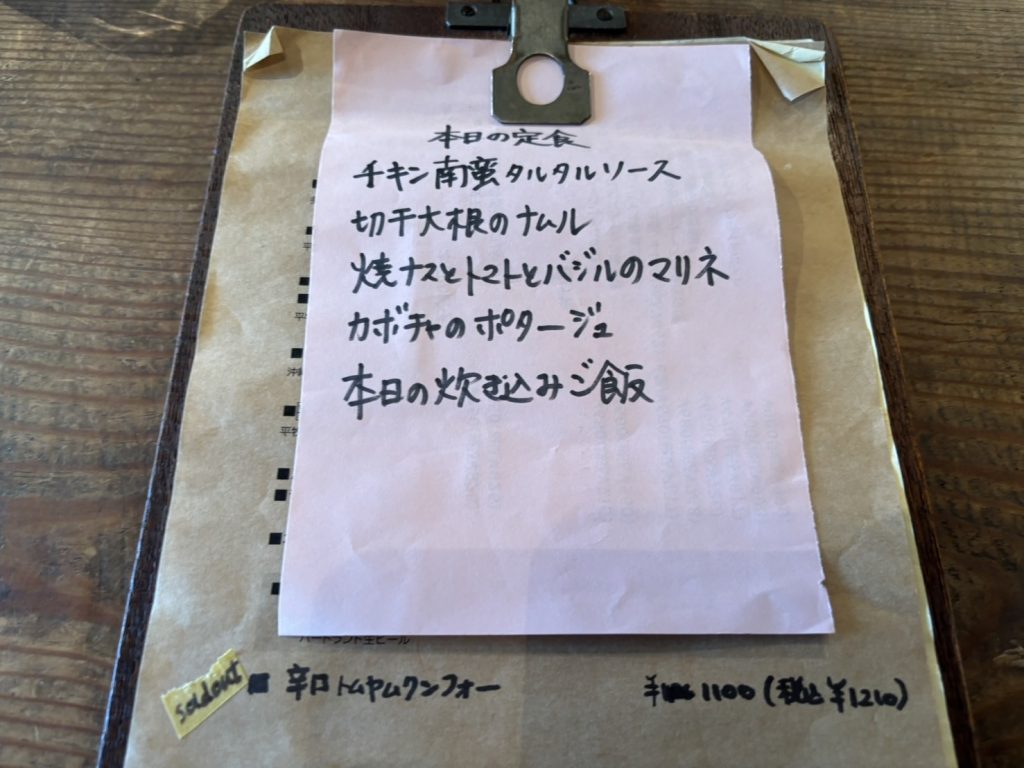 本日の定食
チキン南蛮タルタルソース
切干大根のナムル
焼ナスとトマトとバジルのマリネ
カボチャのポタージュ
本日の炊き込みご飯
ハートランド生ビール
soldout ■ 辛口トムヤムクンフォー ¥1100(税込¥1210)